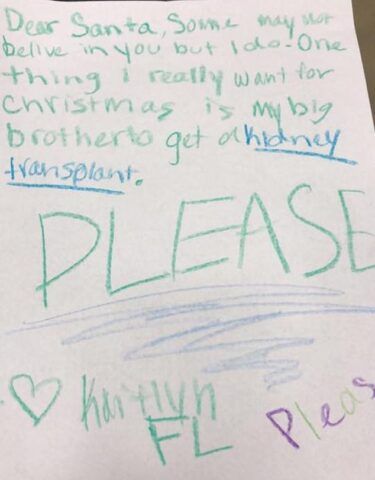 Dear Santa, Some may not
belive in you but I do - One
thing I really want for
christmas is my big
brother to get a kidney
transplant.
PLEASE
♡ Kaitlyn
FL
Pleas